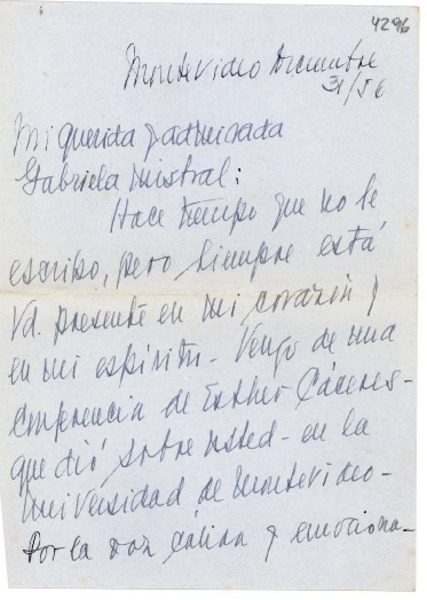 4296
Montevideo Diciembre
31/56
Mi querida y admirada
Gabriela Mistral:
Hace tiempo que no le
escribo, pero siempre está
Vd. presente en mi corazón y
en mi espíritu - Vengo de una
conferencia de Esther Cáceres -
que dió sobre usted - en la
Universidad de Montevideo -
Por la voz cálida y emociona-